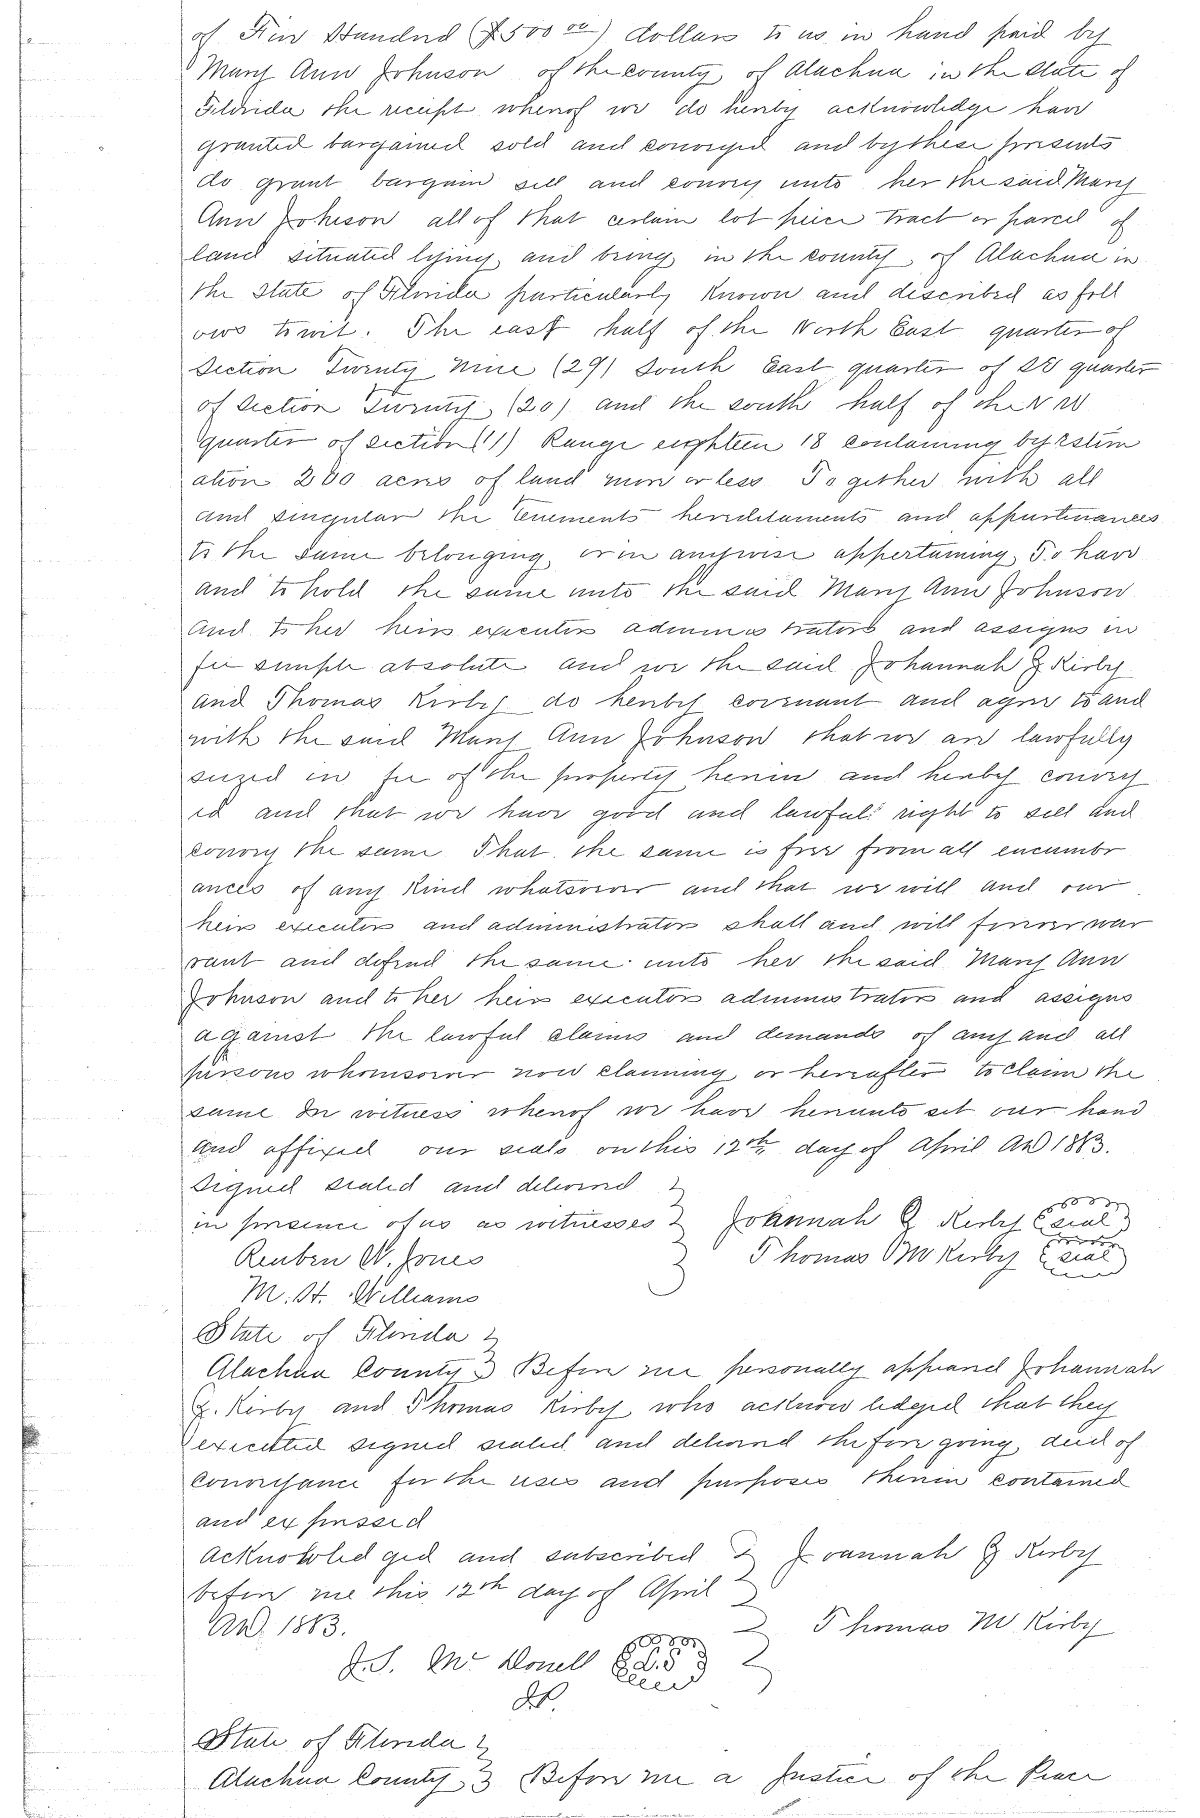 of Five Hundred ($500 00) dollars to us in hand paid by
Mary Ann Johnson of the county of Alachua in the State of
Florida the receipt whereof we do hereby acknowledge have
granted bargained sold and conveyed and by these presents
do grant bargain sell and convey unto her the said Mary
Ann Johnson all of that certain lot peice tract or parcel of
land situated lying and being in the county of Alachua in
the State of Florida particularly known and described as foll
ows towit. The east half of the North East quarter of
Section Twenty Nine (29) South East quarter of SE quarter
of Section Twenty (20) and the south half of the NW
quarter of section Range eighteen 18 containing by estim
ation 200 acres of land more or less Together with all
and singular the tenements hereditaments and appurtenances
to the same belonging or in anywise appertaining, To have
and to hold the same unto the said Mary Ann Johnson
and to her heirs executors administrators and assigns in
fee simple absolute and we the said Johannah G Kirby
and Thomas Kirby do hereby covenant and agree to and
with the said Mary Ann Johnson that we are lawfully
seized in fee of the property herein and hereby convey
ed and that we have good and lawful right to sell and
convey the same That the same is free from all encumbr
ances of any kind whatsoever and that we will and our
heirs executors and administrators shall and will forever war
rant and defend the same unto her the said Mary Ann
Johnson and to her heirs executors administrators and assigns
against the lawful claims and demands of any and all
persons whomsoever now claiming or hereafter to claim the
same In witness whereof we have hereunto set our hand
and affixed our seals on this 12th day of April AD 1883.
Signed sealed and delivered
in presence of us as witnesses Johannah G Kirby seal
Reuben W. Jones Thomas M Kirby seal
M. H. Williams
State of Florida
Alachua County Before me personally appeared Johannah
G. Kirby and Thomas Kirby who acknowledged that they
executed signed sealed and delivered the foregoing deed of
conveyance for the uses and purposes therein contained
and expressed
Acknowledged and subscribed Joannah G Kirby
before me this 12th day of April
AD. 1883. Thomas M Kirby
J.S. Mc Donell L.S
JP.
State of Florida
Alachua County Before me a Justice of the Peace